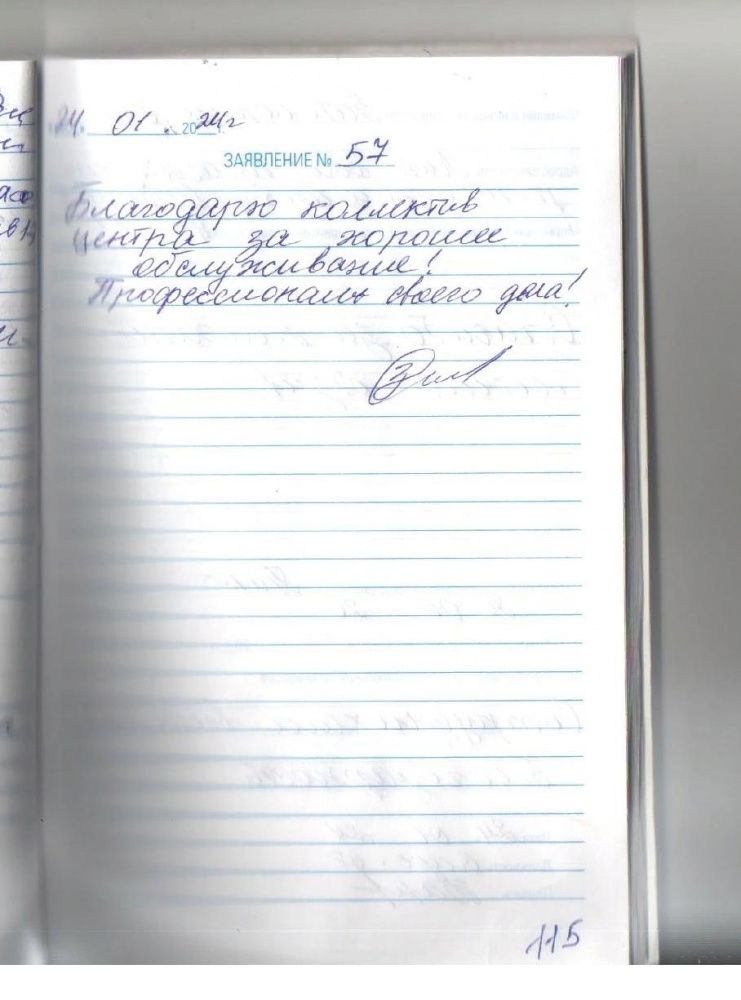 24. 01 2024г
ЗАЯВЛЕНИЕ № 57
Благодарю коллектив
центра за хорошее
обслуживание!
Профессионалы своего дела!
115